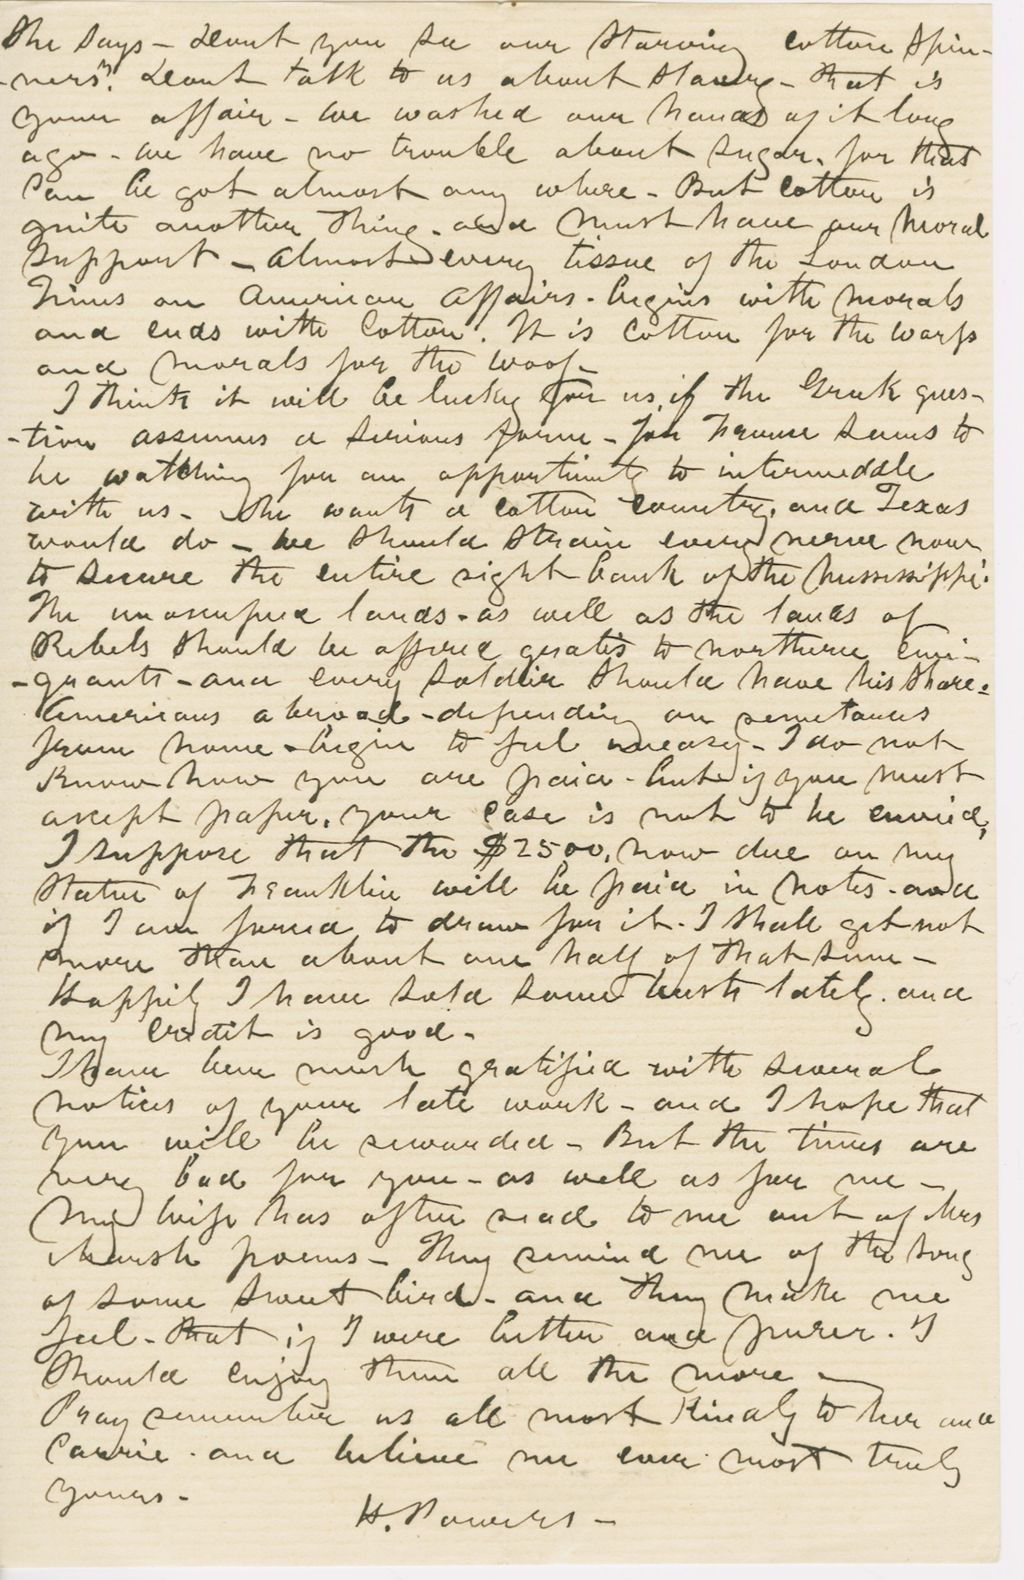 She says - Dont you see our starving cotton spin-
-ners? Dont talk to us about slavery - that is
your affair - we washed our hands of it long
ago - we have no trouble about sugar, for that
can be got almost any where - But cotton is
quite another thing - and must have our moral
support - Almost every tissue of the London
Times on American affairs - begins with morals
and ends with cotton. It is cotton for the warp
and morals for the woof -
I think it will be lucky for us, if the Greek ques-
-tion assumes a serious form - for France seems to
be watching for an opportunity to intermeddle
with us - She wants a cotton country, and Texas
would do - we should strain every nerve now
to secure the entire right bank of the Mississippi.
The unoccupied lands - as well as the lands of
Rebels should be offered gratis to northern emi-
-grants - and every soldier should have his share -
Americans abroad - depending on remitances
from home - begin to feel uneasy - I do not
know how you are paid - but if you must
accept paper, your case is not to be envied,
I suppose that the $2500, now due on my
statue of Franklin will be paid in notes - and
if I am forced to draw for it - I shall get not
more than about one half of that sum -
Happily I have sold some busts lately - and
my credit is good -
I have been much gratified with several
notices of your late work - and I hope that
you will be rewarded - But the times are
very bad for you - as well as for me -
My wife has often read to me out of Mrs
Marsh poems - They remind me of the song
of some sweet bird - and they make me
feel - that if I were better and purer - I
should enjoy them all the more -
Pray remember us all most kindly to her and
Carrie - and believe me ever most truly
yours -
H. Powers -